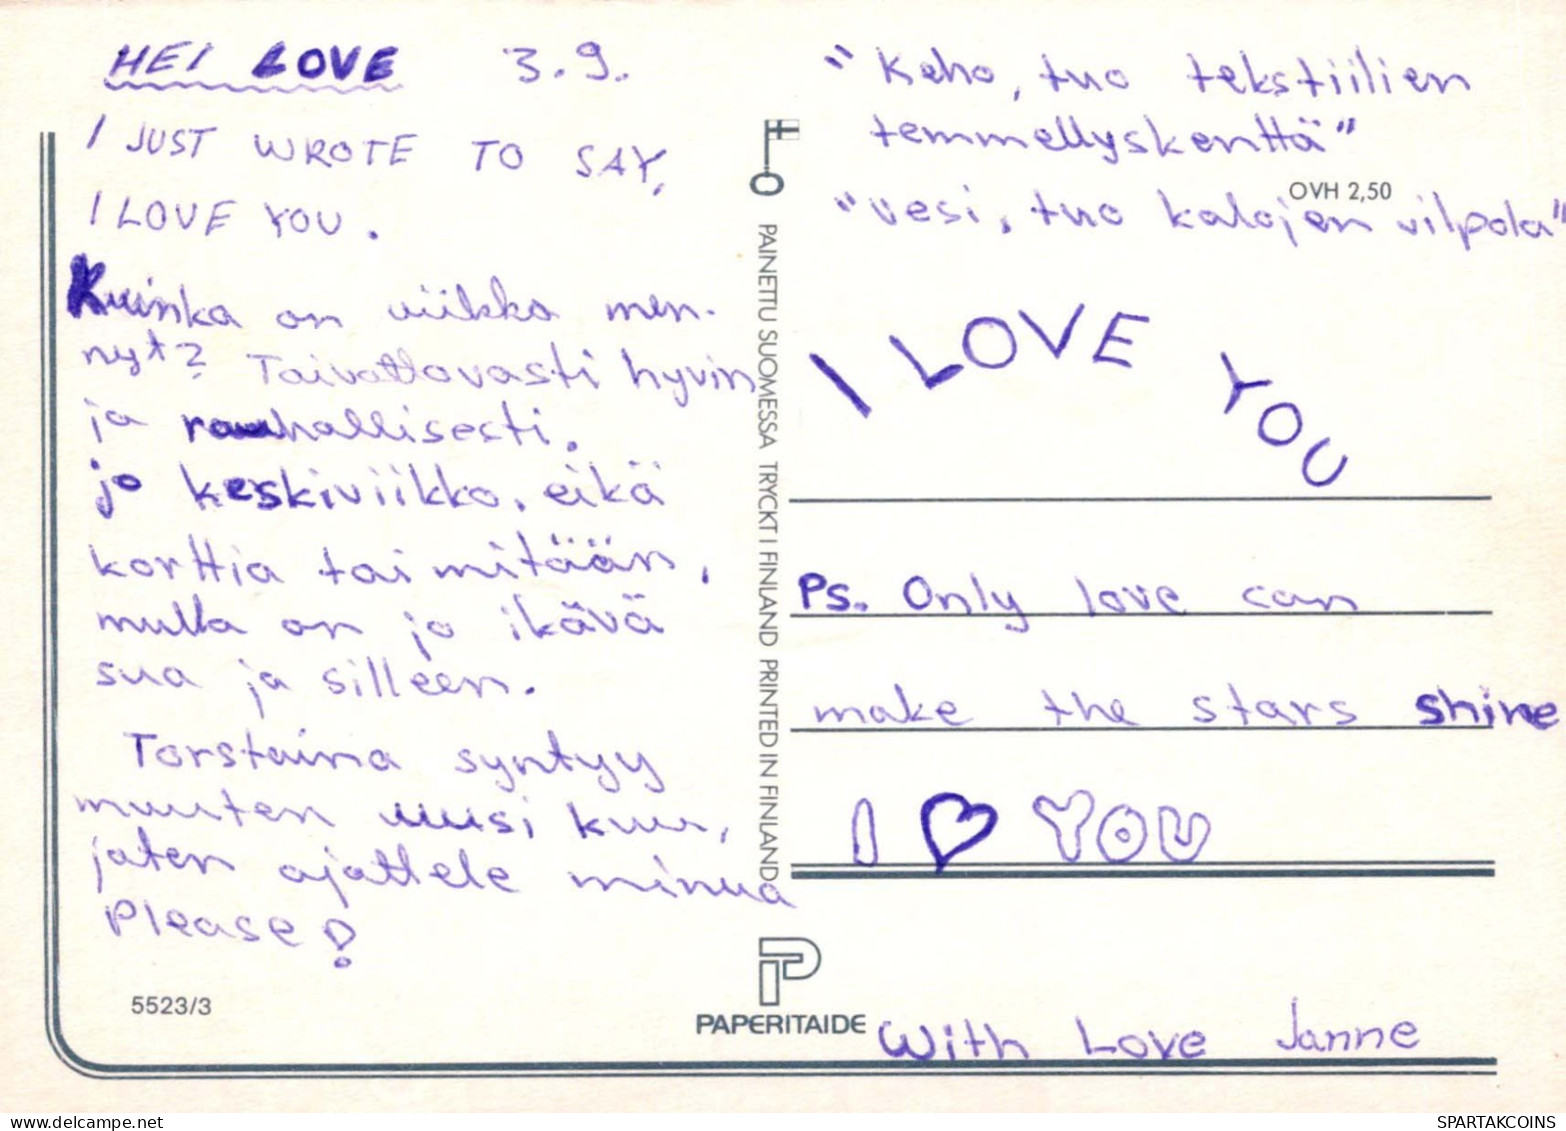 HEI LOVE 3.9.
I JUST WROTE TO SAY,
I LOVE YOU.
Kuinka on viikko men-
nyt? Taivattavasti hyvin
ja rauhallisesti.
jo keskiviikko, eikä
korttia tai mitään,
mulla on jo ikävä
sua ja silleen.
Torstaina syntyy
muuten uusi kuu,
joten ajattele minua
Please!
5523/3
PAINETTU SUOMESSA TRYCKT I FINLAND PRINTED IN FINLAND
PAPERITAIDE
"Keho, tuo tekstiilien
temmellyskenttä"
OVH 2,50
"vesi, tuo kalojen vilpola"
I LOVE YOU
Ps. Only love can
make the stars shine
I ♥ YOU
With Love Janne
SPARTAKCOINS.COM